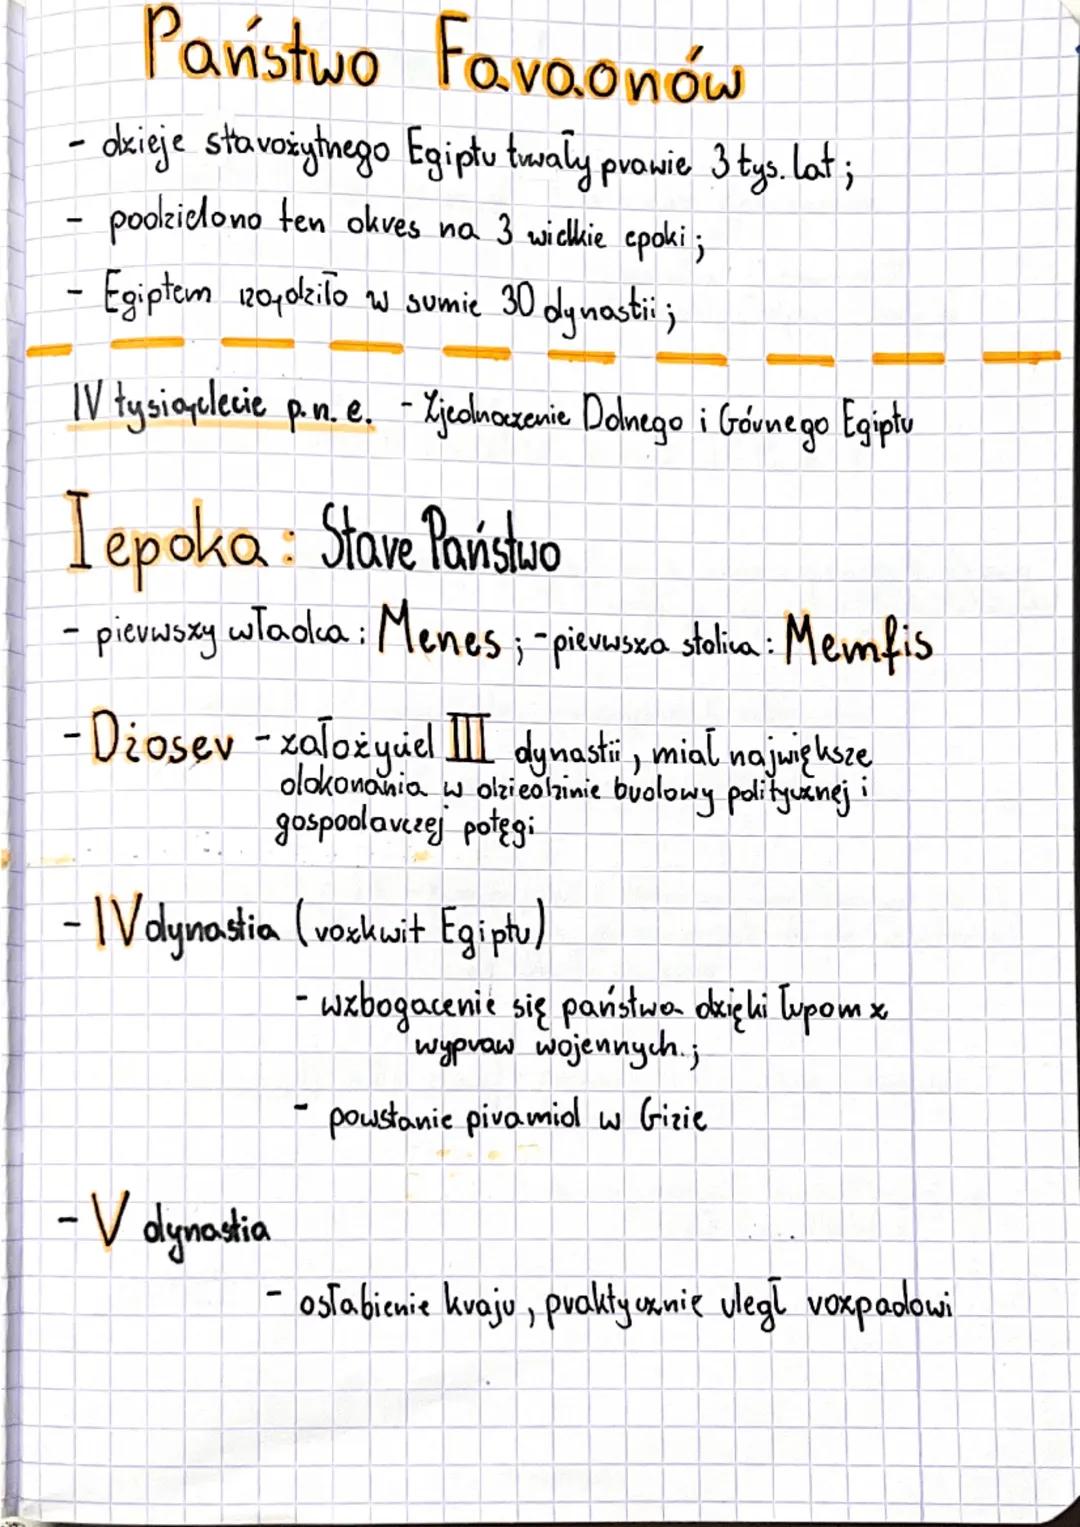 Państwo Faraonów
- dzieje starożytnego Egiptu trwały prawie 3 tys. lat;
- podzielono ten okres na 3 wielkie epoki;
- Egiptem rządziło w sumie 30 dynastii;
IV tysiąclecie p.n.e. - Zjednoczenie Dolnego i Górnego Egiptu
I epoka: Stare Państwo
- pierwszy władca: Menes; - pierwsza stolica: Memfis
- Dżoser - założyciel III dynastii, miał największe
dokonania w dziedzinie budowy politycznej i
gospodarczej potęgi
- IV dynastia (rozkwit Egiptu)
- wzbogacenie się państwa dzięki łupom z
wypraw wojennych.;
- powstanie piramid w Gizie
- V dynastia
- osłabienie kraju, praktycznie uległ rozpadowi